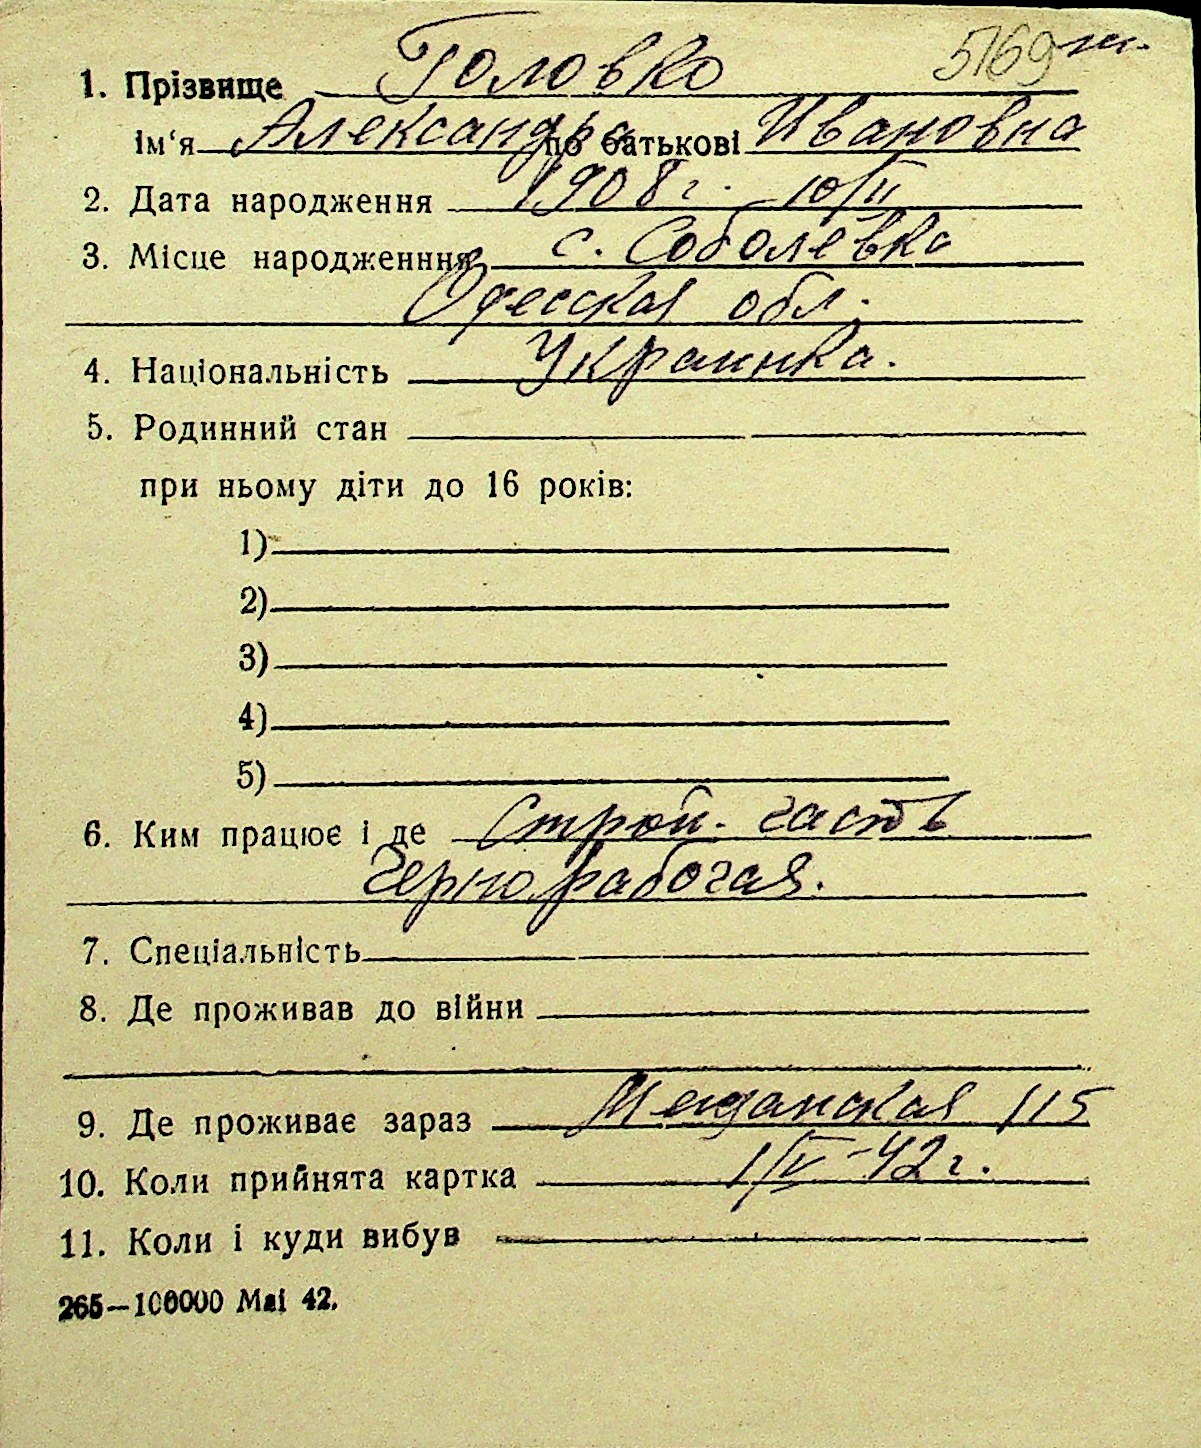 5169
1. Прізвище Головко
ім‘я Александра по батькові Ивановна
2. Дата народження 1908 г. 10/II
3. Місце народженння с. Соболевка
Одесская обл.
4. Національність Украинка.
5. Родинний стан
при ньому діти до 16 років:
1)
2)
3)
4)
5)
6. Ким працює і де Строй. часть
Чернорабочая.
7. Спеціальність
8. Де проживав до війни
9. Де проживає зараз 115
10. Коли прийнята картка 1/V-42 г.
11. Коли і куди вибув
265—100000 Маі 42.